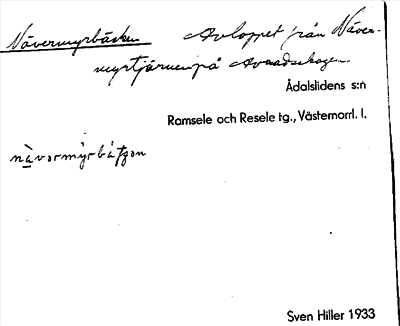 Nävermyrbäcken Avloppet från Näver-
myrtjärnen på Avaadschagen.
Ådalslidens s:n
Ramsele och Resele tg., Västernorrl. l.
Sven Hiller 1933